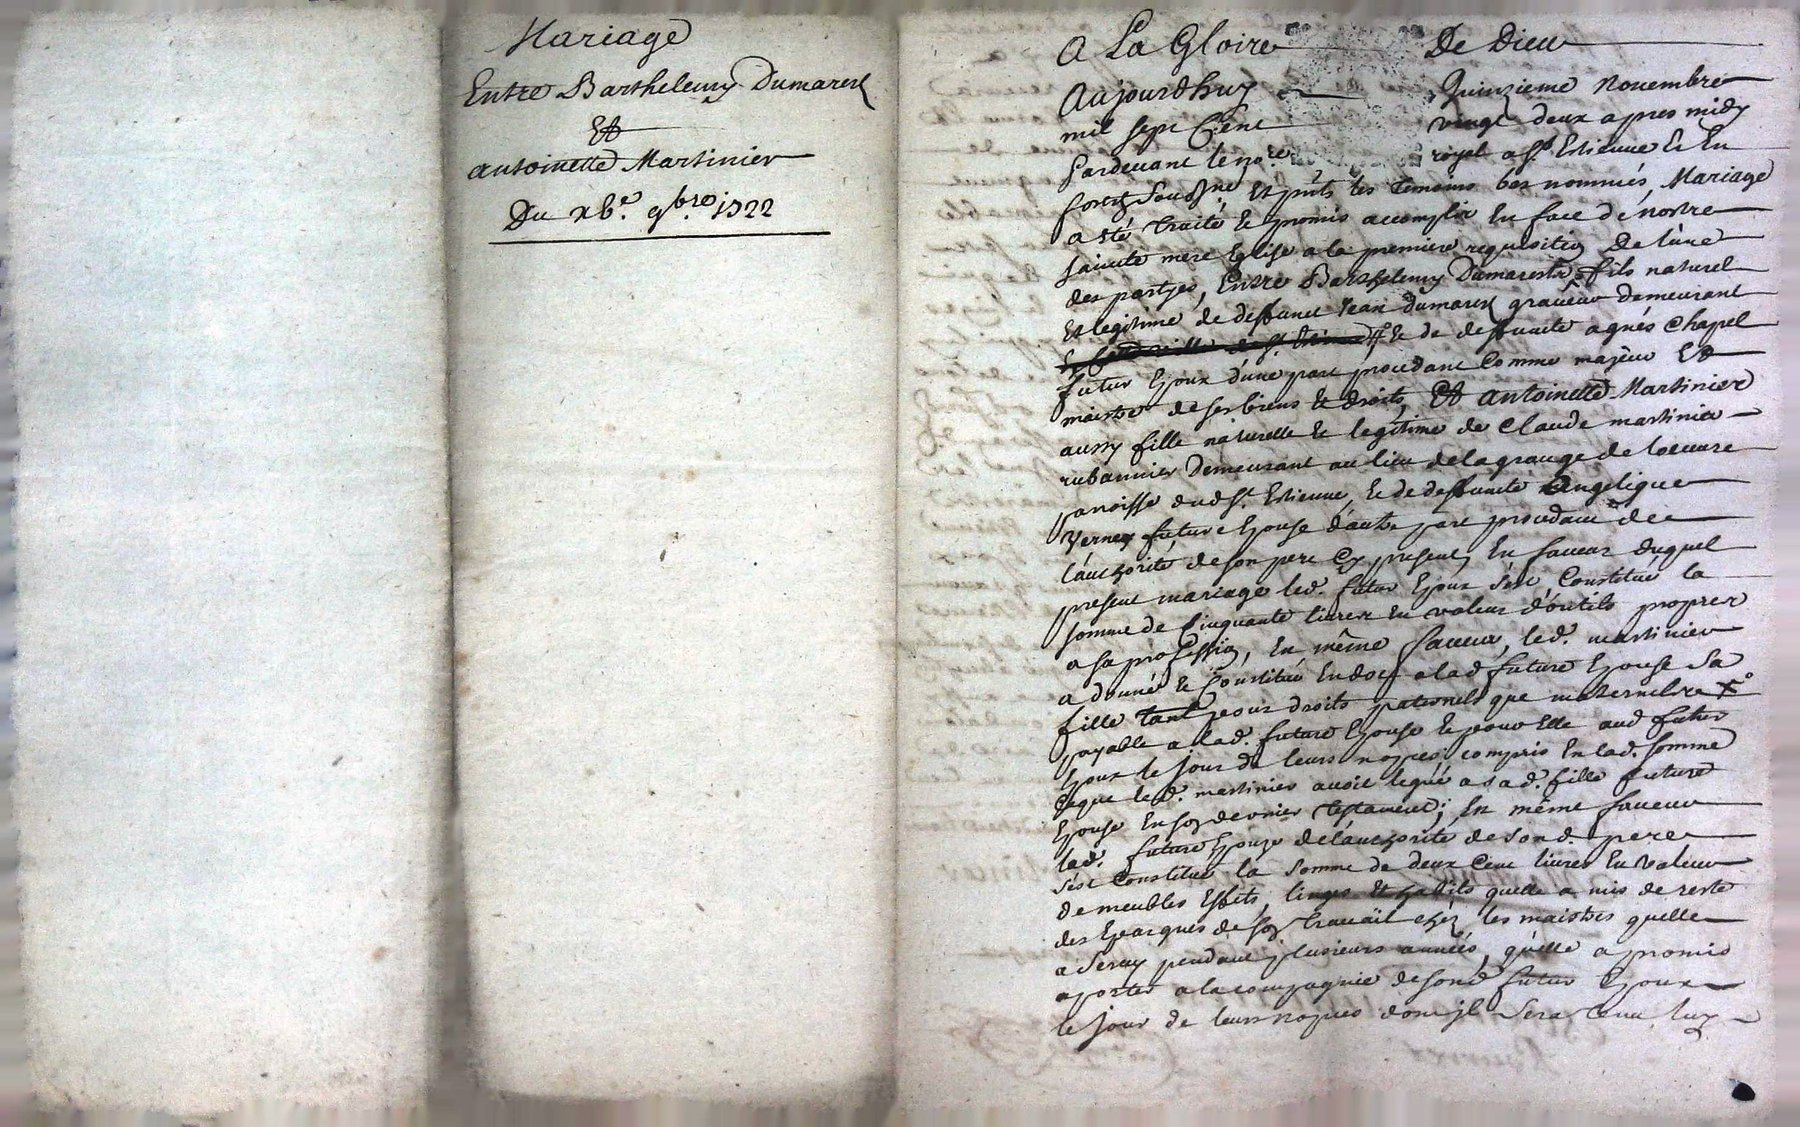 Mariage
Entre Barthelemy Dumarest
Et
antoinette Martinier
Du xbe. 9bre 1722
A La Gloire De Dieu
Aujourdhuy Quinzieme Novembre
mil sept Cent vingt deux apres midy
Pardevant le nore. royal a St. Estienne Et En
forest sousne. Et pnts les temoins bas nommés, Mariage
a sté traité Et promis accomplir En face de nostre
sainte mere Eglise a la premiere requisition De l'une
des partyes, Entre Barthelemy Dumarest fils naturel
Et legitime de deffunct Jean Dumarest graveur demeurant
Et de deffuncte agnés Chapel
futur Epoux d'une part procedant Comme majeur Et
maistre de ses biens Et droits, Et antoinette Martinier
aussy fille naturelle Et legitime de Claude martinier
rubannier Demeurant au lieu de la grange de loeuvre
parroisse dud St. Estienne, Et de deffuncte Angelique
Verney future Epouse d'autre part procedant de
l'authorité de son pere Cy present, En faveur duquel
present mariage led. futur Epoux s'est Constitué la
somme de Cinquante livres En valeur d'outils propres
a sa profession, En même faveur, led. martinier
a donné Et Constitué En dot a lad future Epouse sa
fille tant pour droits paternels que maternels
payable a lad. future Epouse Et pour Elle aud futur
Epoux le jour de leurs nopces, compris En lad. somme
Ceque led. martinier avoit legué a sad. fille future
Epouse En son dernier testament; En même faveur
lad. future Epouse de l'authorité de sond. pere
s'est Constitué la somme de deux Cent livres En valeur
de meubles Effets, linges Et habits quelle a mis de reste
des Epargnes de son travail chéz les maistres quelle
a servy pendant plusieurs années, qu'elle a promis
aporter a la compagnie de sond futur Epoux
le jour de leurs nopces dont il sera tenu luy